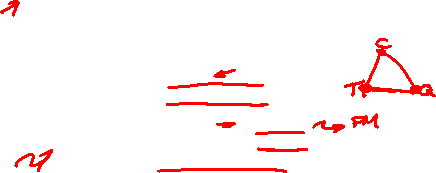 C
T Q
FM